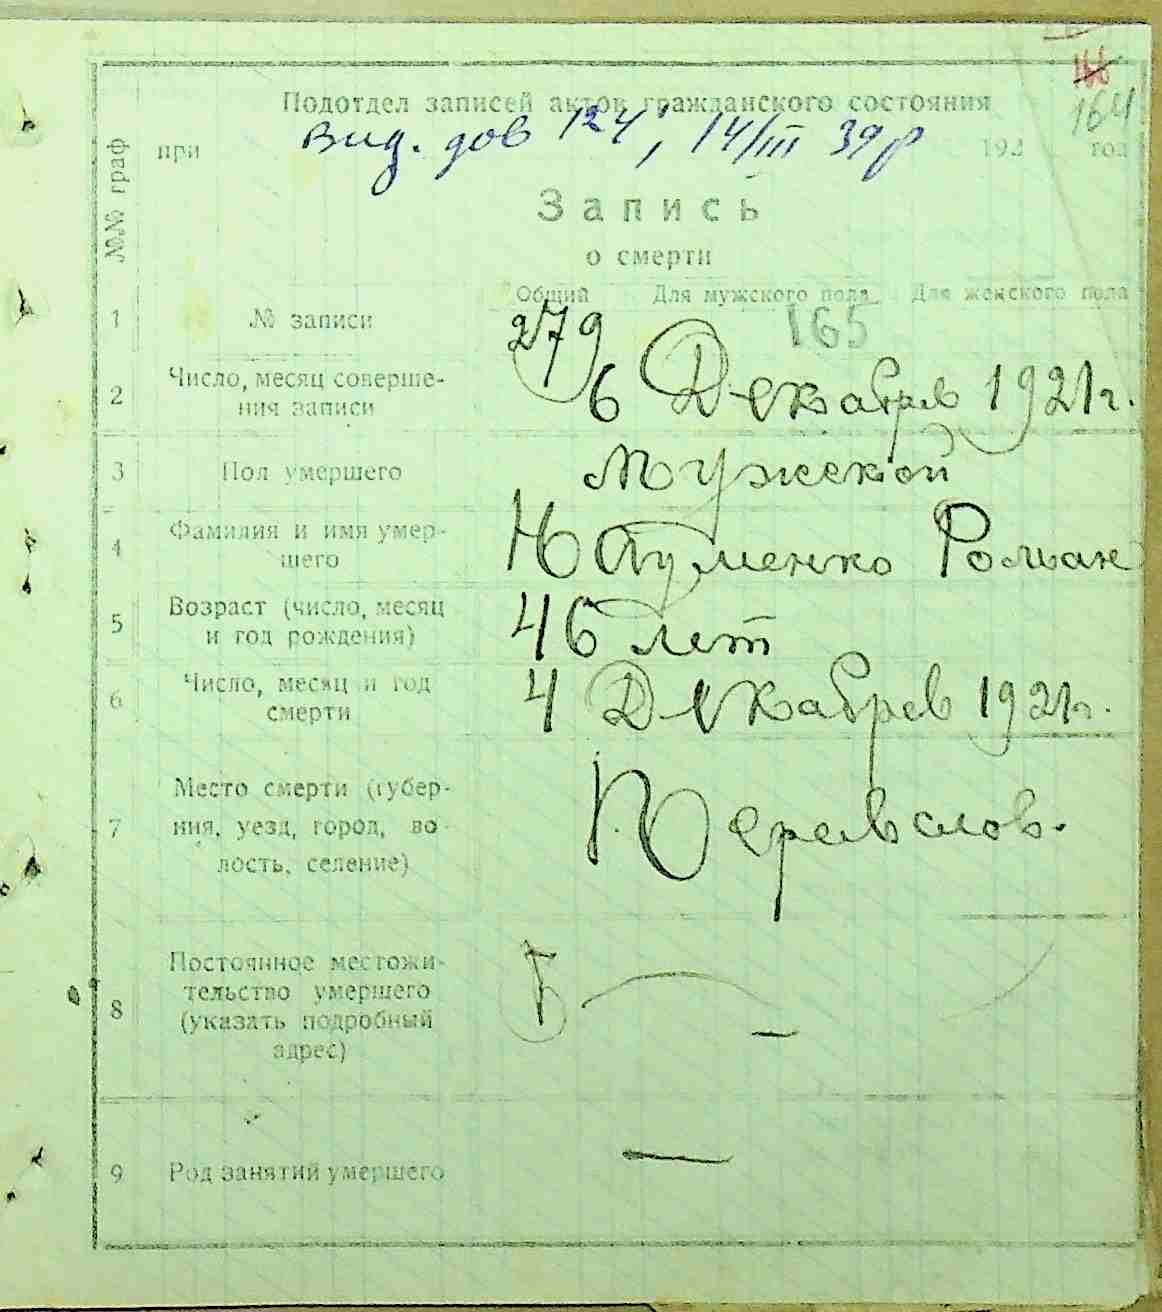 166
164
Подотдел записей актов гражданского состояния
Вид. дов 124, 14/III 39р
при 192 год
№№ граф
Запись
о смерти
Общий Для мужского пола Для женского пола
1 № записи 279 165
2 Число, месяц соверше-
ния записи 6 Декабрь 1921г.
3 Пол умершего Мужской
4 Фамилия и имя умер-
шего Науменко Роман
5 Возраст (число, месяц
и год рождения) 46 лет
6 Число, месяц и год
смерти 4 Декабрев 1921г.
7 Место смерти (губер-
ния, уезд, город, во-
лость, селение)
8 Постоянное местожи-
тельство умершего
(указать подробный
адрес) —
9 Род занятий умершего —